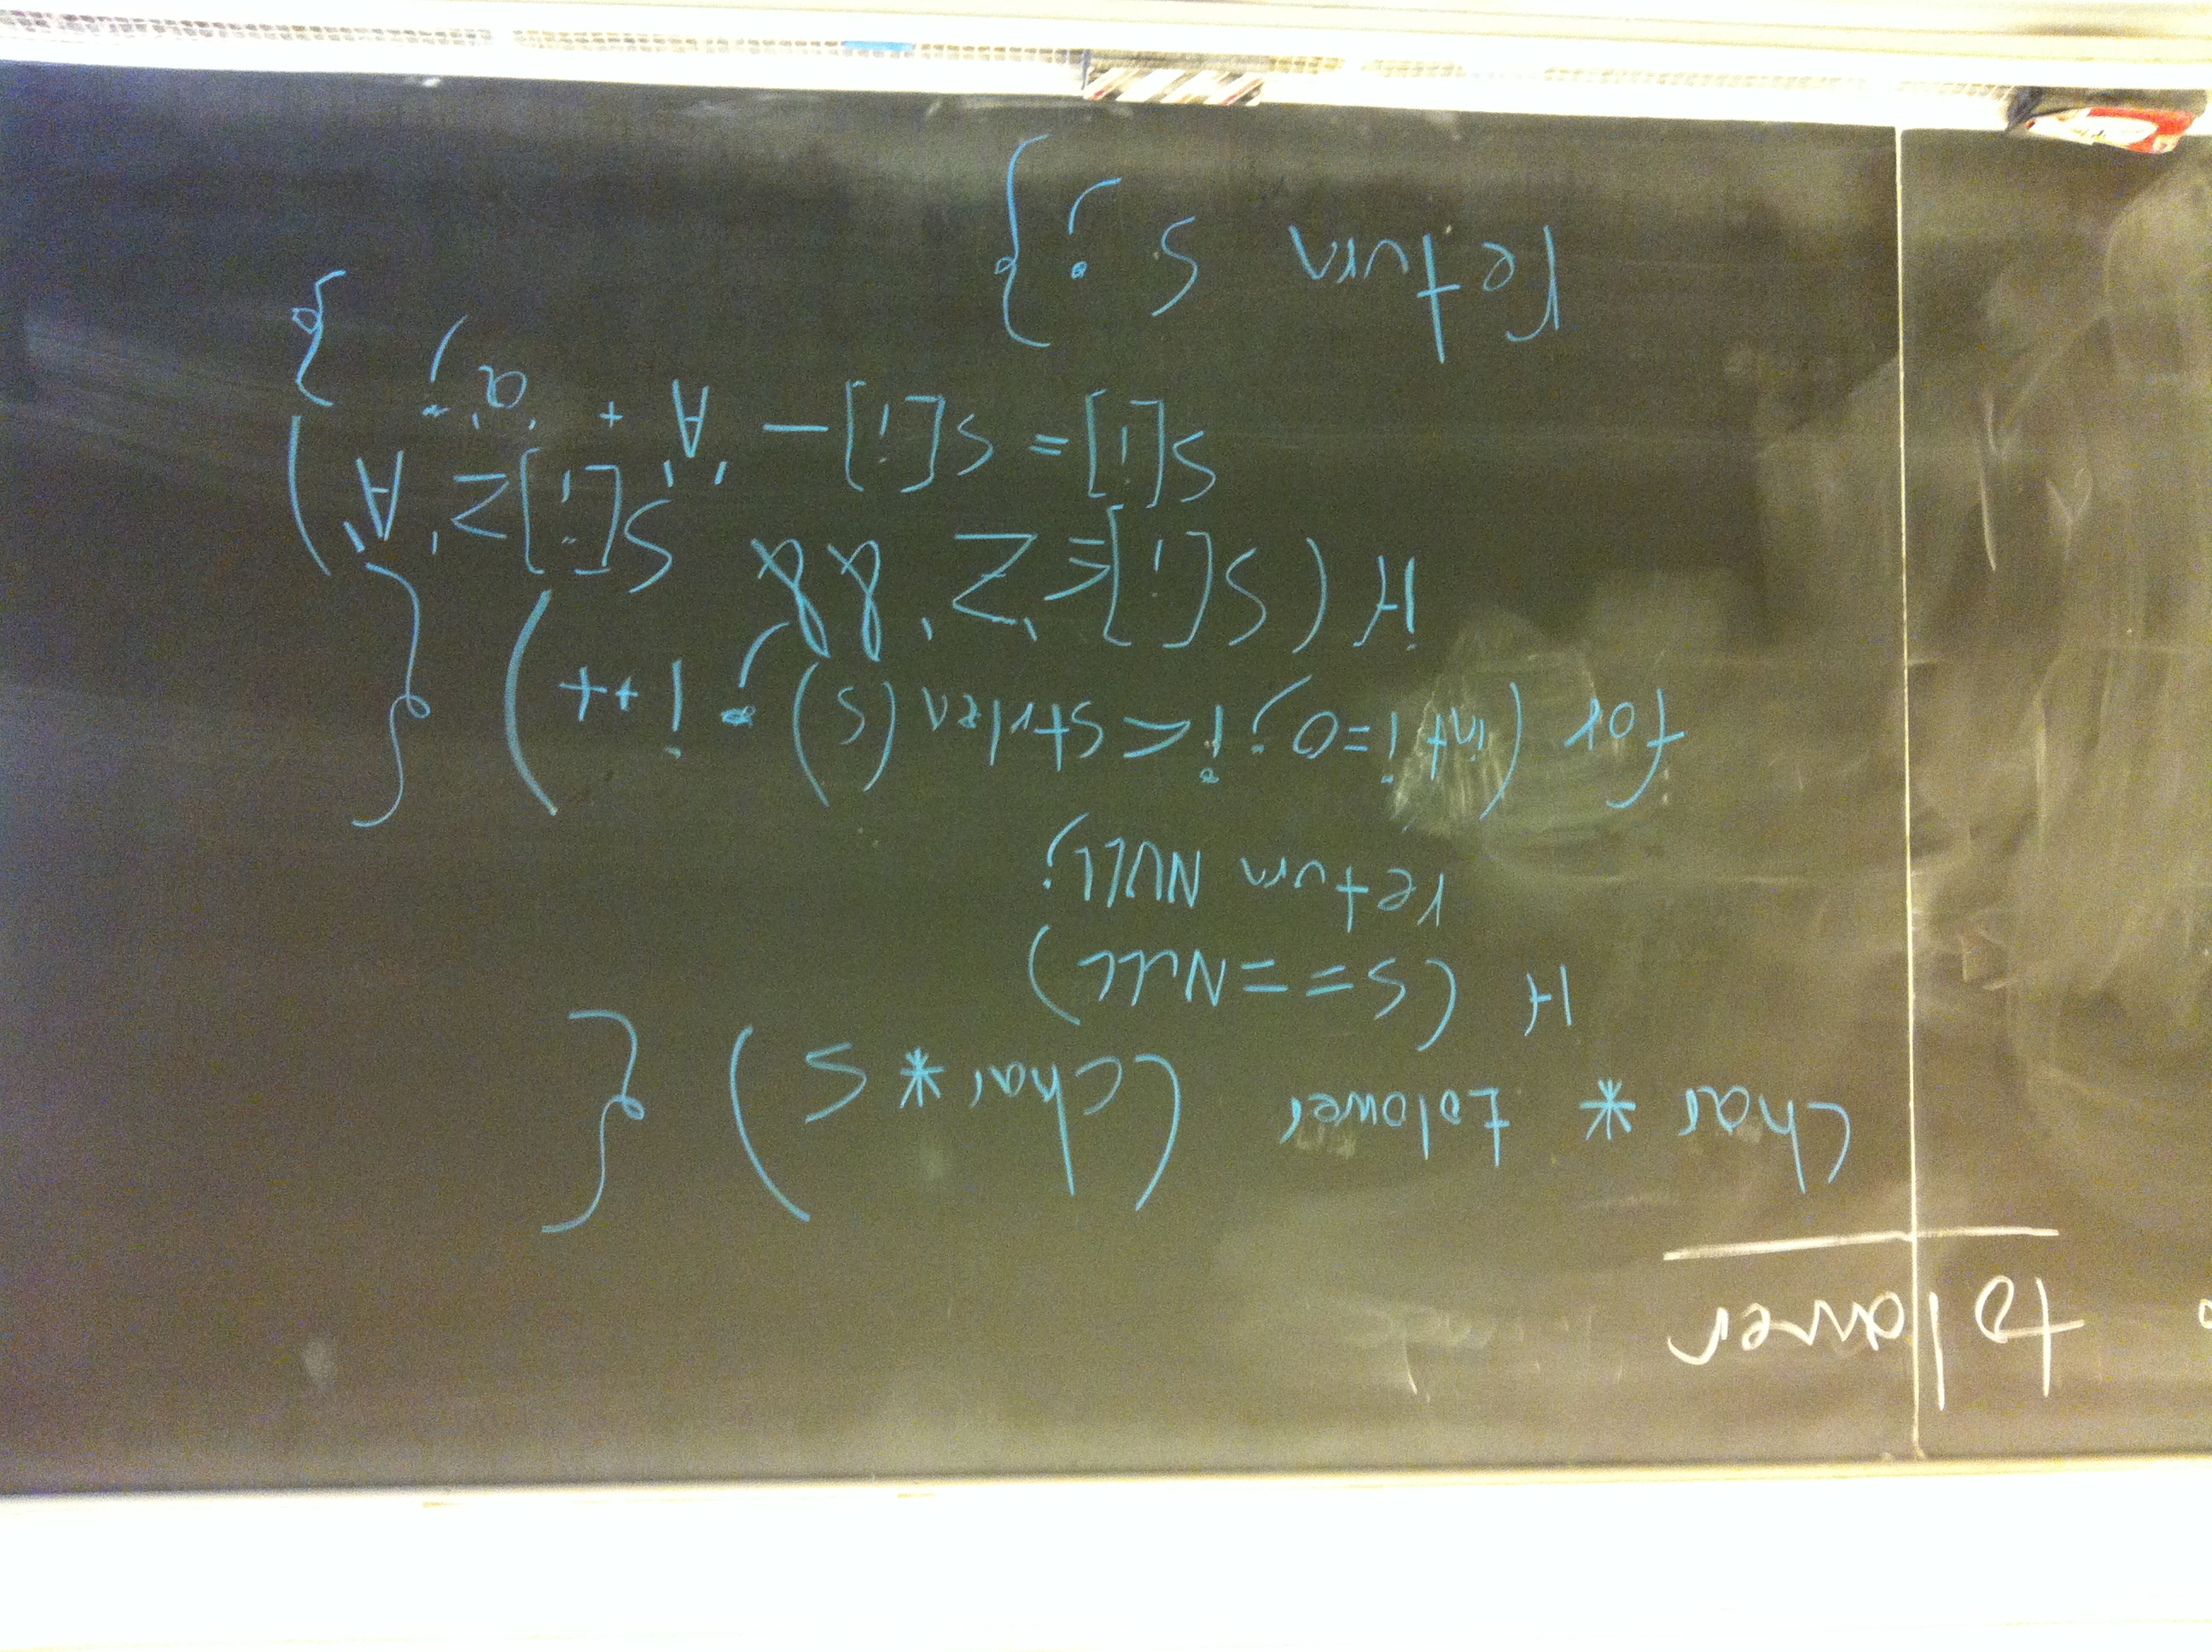 tolower
char * tolower (char * s) {
if (s == NULL)
return NULL;
for (int i=0; i < strlen(s); i++) {
if (s[i] ≤ 'Z' && s[i] ≥ 'A')
s[i] = s[i] - 'A' + 'a'; }
return s; }